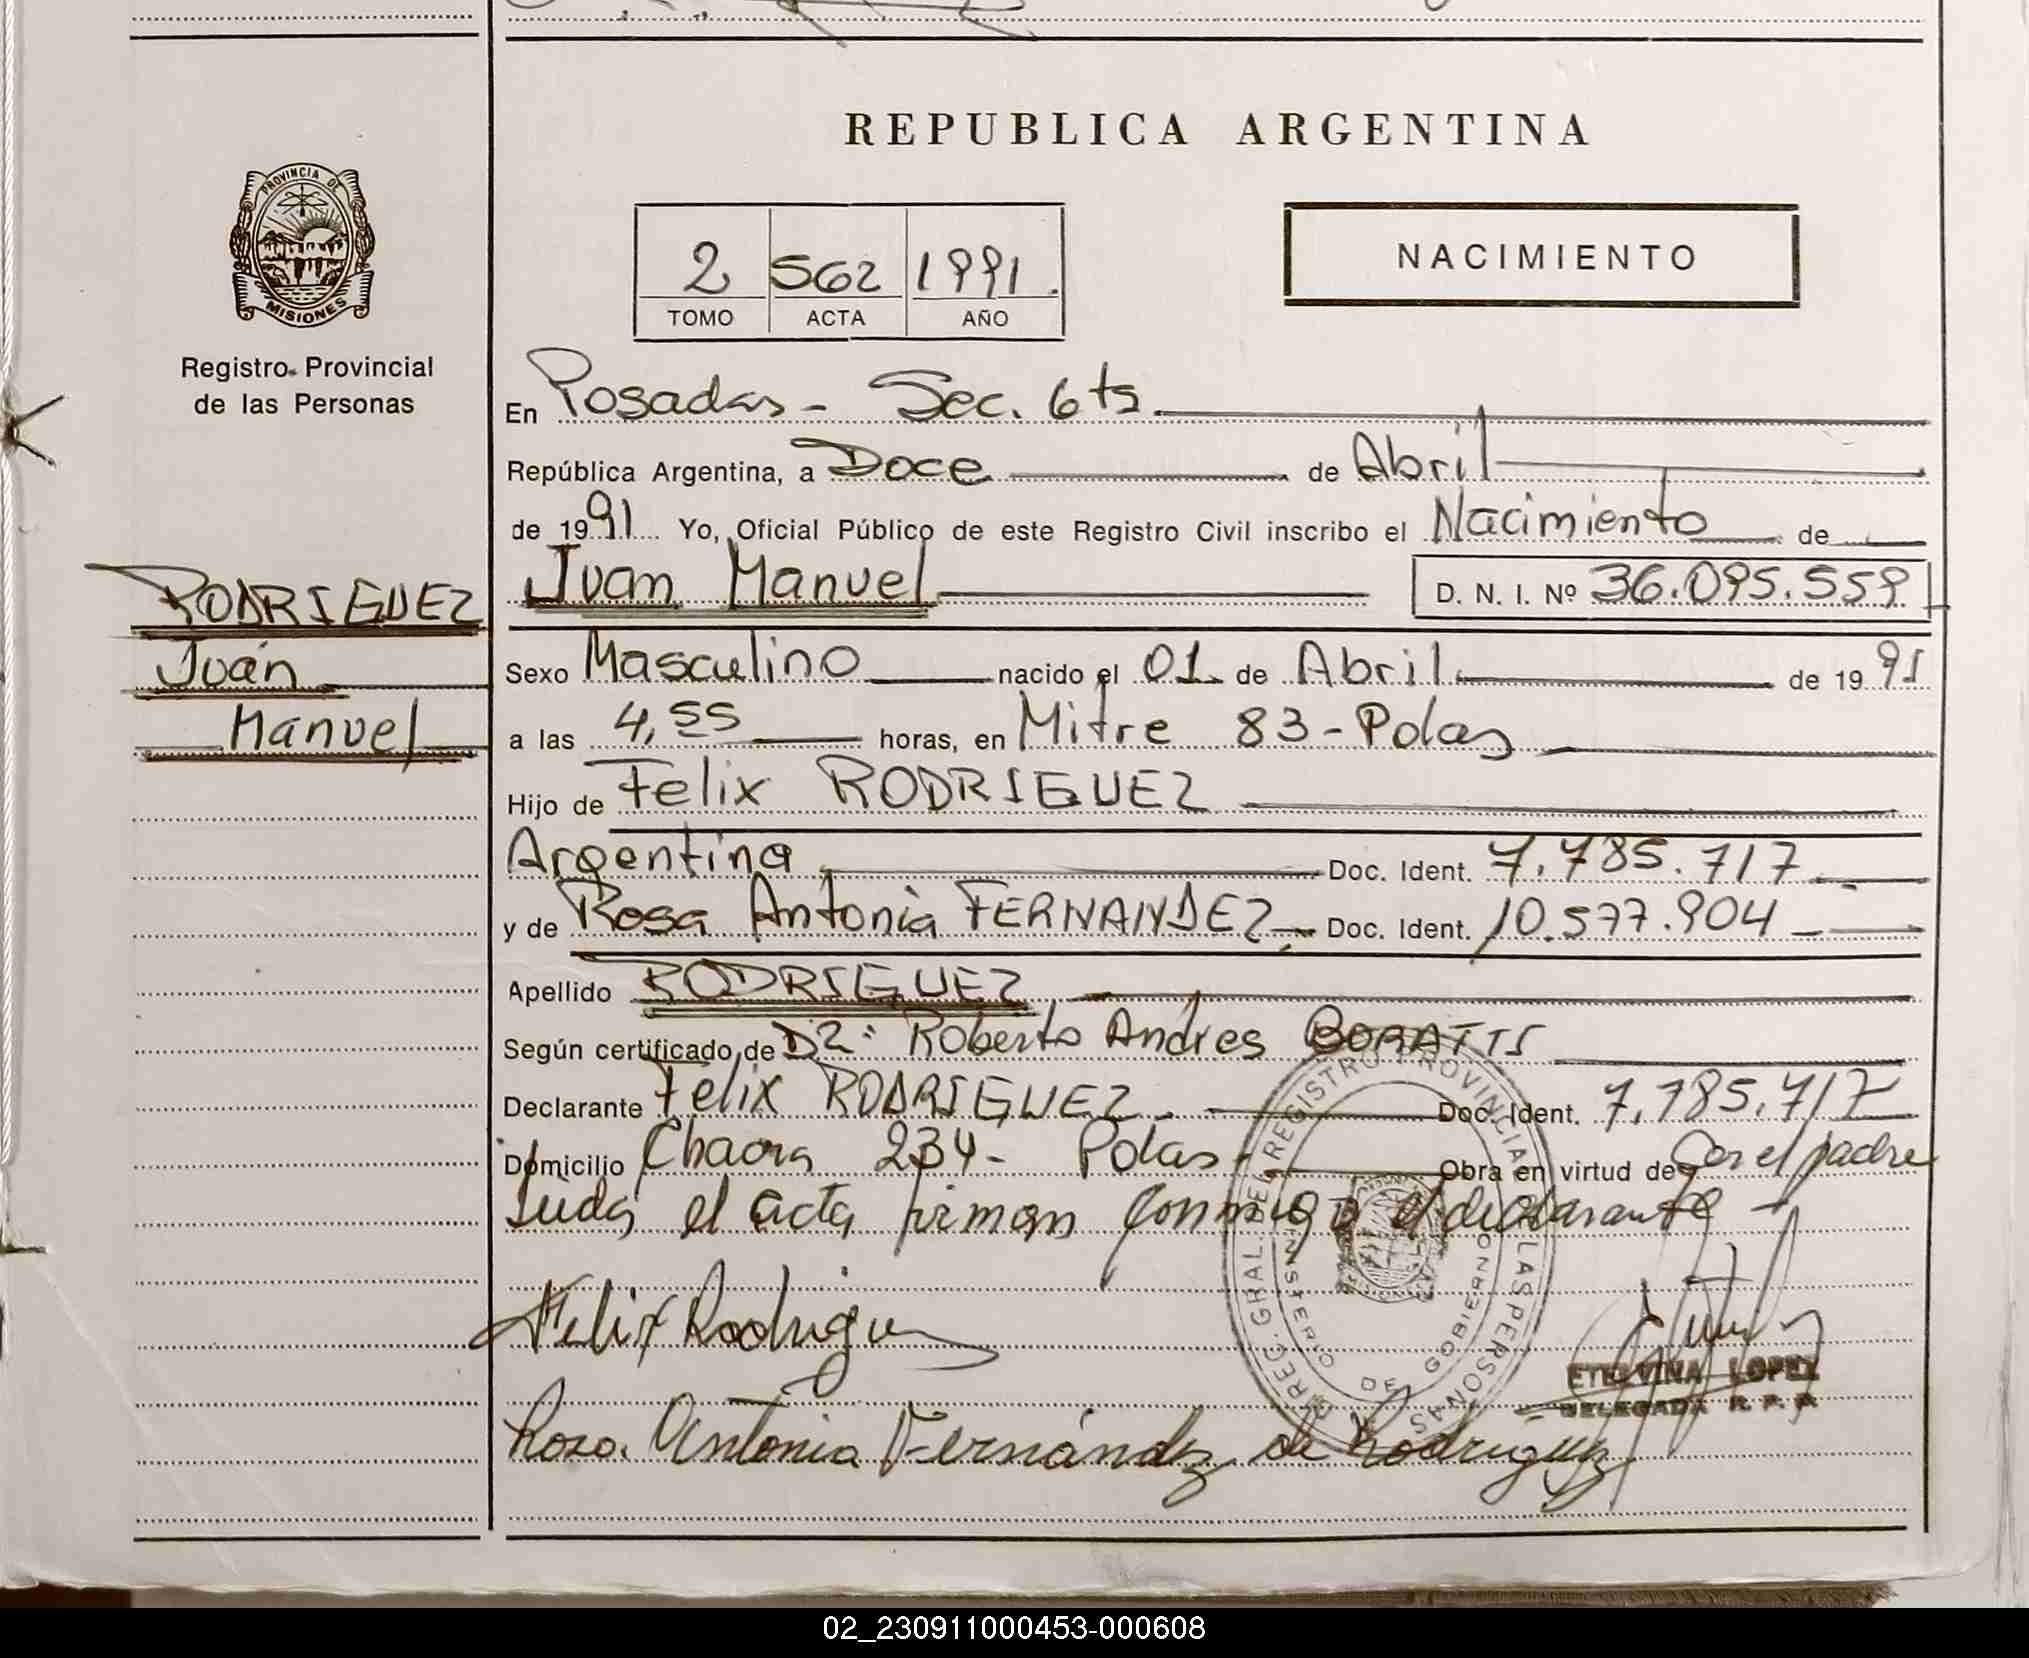 REPUBLICA ARGENTINA
PROVINCIA DE
MISIONES
Registro Provincial
de las Personas
2 562 1991.
TOMO ACTA AÑO
NACIMIENTO
En Posadas - Sec. 6ta.
República Argentina, a Doce de Abril
de 1991 Yo, Oficial Público de este Registro Civil inscribo el Nacimiento de
RODRIGUEZ
Juan
Manuel
Juan Manuel D. N. I. Nº 36.095.559
Sexo Masculino nacido el 01 de Abril de 1991
a las 4,55 horas, en Mitre 83 - Pdas
Hijo de Felix RODRIGUEZ
Argentina Doc. Ident. 7.785.717
y de Rosa Antonia FERNANDEZ Doc. Ident. 10.577.904
Apellido RODRIGUEZ
Según certificado de Dr: Roberto Andres BORATTI
Declarante Felix RODRIGUEZ Doc. Ident. 7.785.717
Domicilio 234 - Pdas - Obra en virtud de Ser el padre
Leida el acta firman conmigo el declarante
DIREC. GRAL. DEL REGISTRO PROVINCIAL DE LAS PERSONAS
MINISTERIO DE GOBIERNO
Felix Rodriguez
ETELVINA LOPEZ
DELEGADA R. P. P.
Rosa Antonia Fernández de Rodriguez
02_230911000453-000608